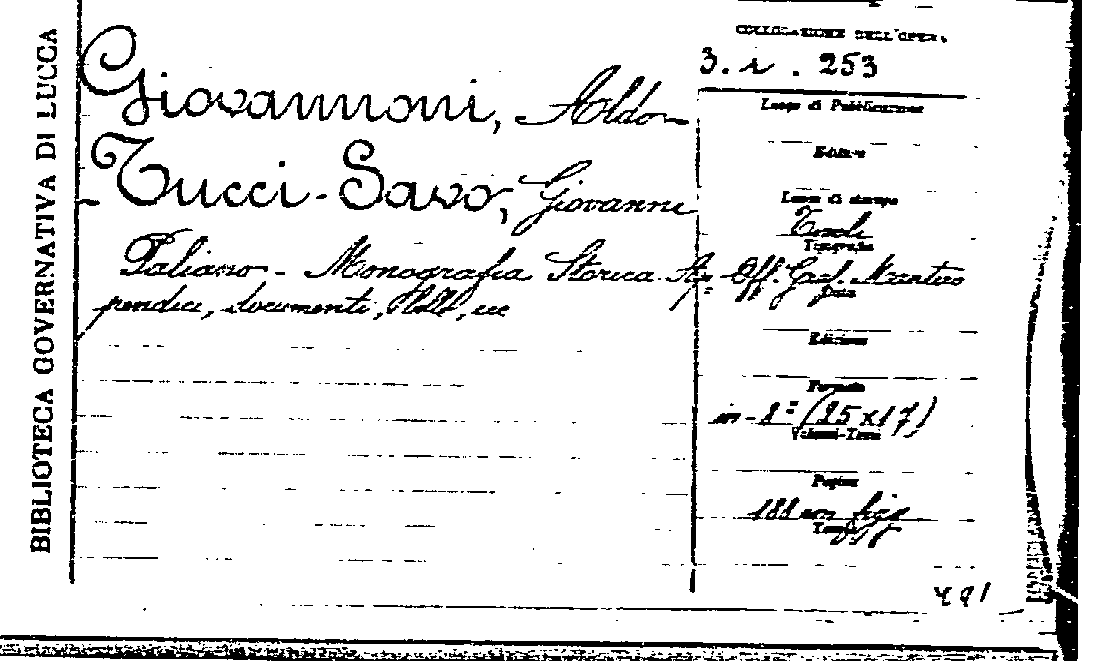 BIBLIOTECA GOVERNATIVA DI LUCCA
Giovannoni, Aldo
- Tucci-Savo, Giovanni
Paliano - Monografia Storica. Ap=
pendice, documenti,
COLLOCAZIONE DELL'OPERA
3. r. 253
Luogo di Pubblicazione
Editore
Luogo di stampa
Tivoli
Tipografia
Off. Graf. Mantero
Data
Edizione
Formato
in-8º (25x17)
Volumi-Tomi
Pagine
188 con figg
491